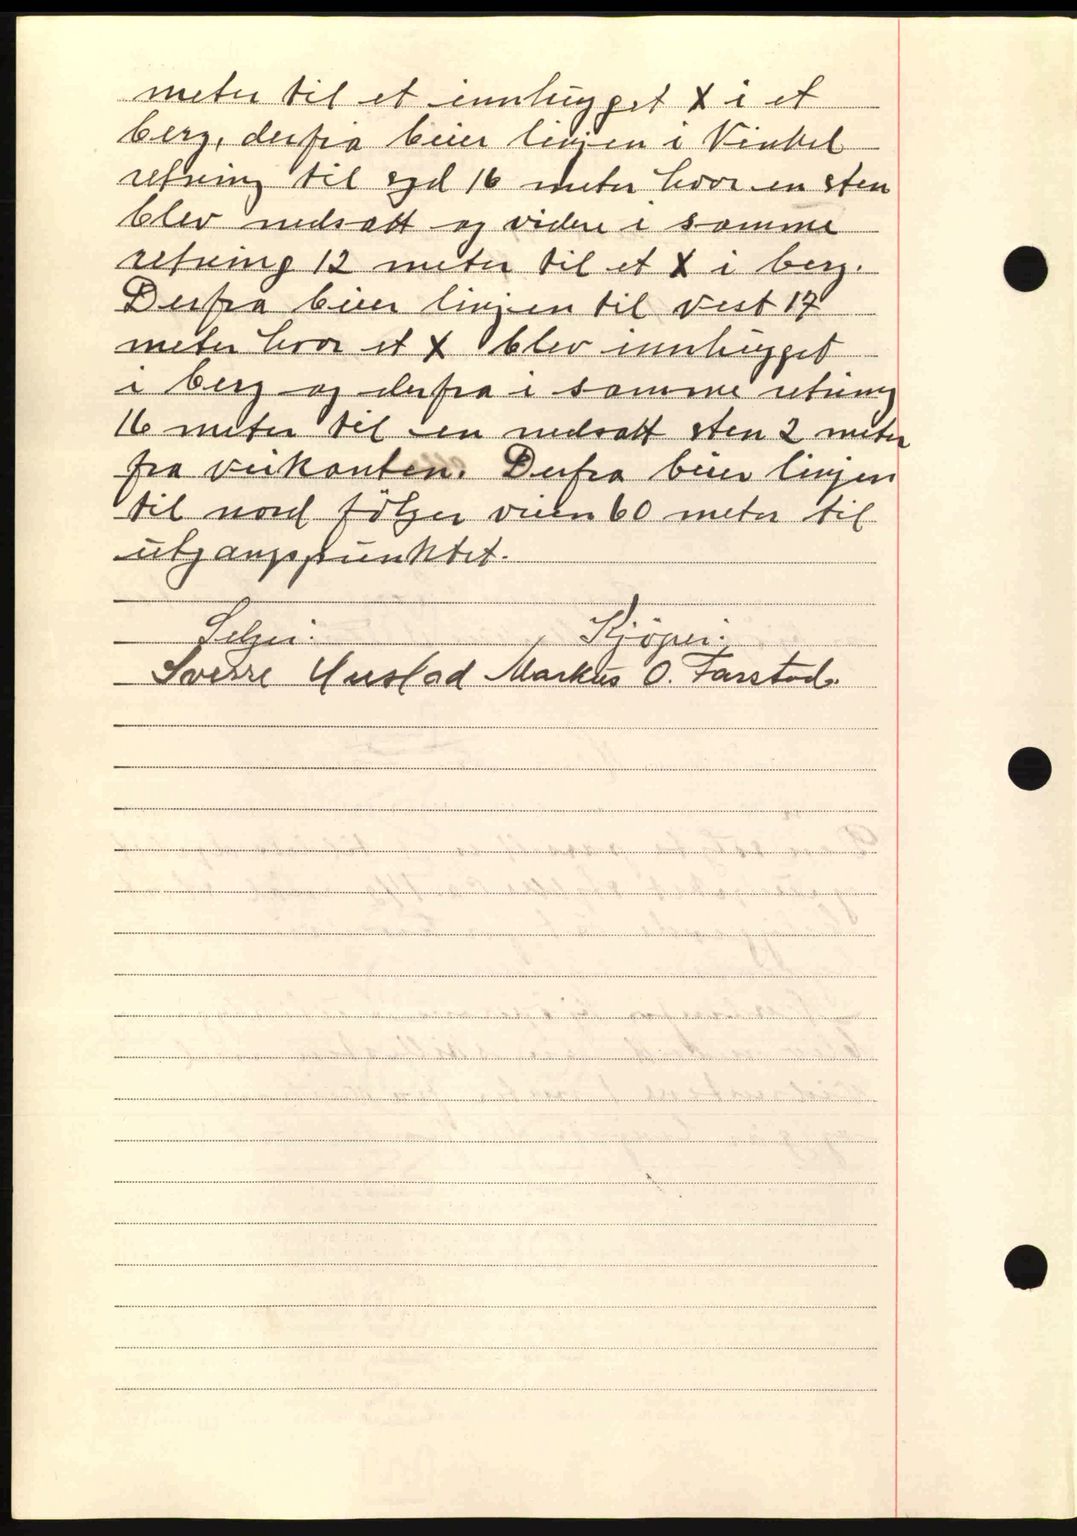 meter til et innhugget X i et
berg, derfra beier linjen i Vinkel
retning til syd 16 meter hvor en sten
blev nedsatt og videre i samme
retning 12 meter til et X i berg.
Derfra beier linjen til vest 17
meter hvor et X blev innhugget
i berg og derfra i samme retning
16 meter til en nedsatt sten 2 meter
fra veikanten. Derfra beier linjen
til nord følger veien 60 meter til
utgangspunktet.
Selger: Kjöper:
Sverre Hustad Markus O. Farstad.